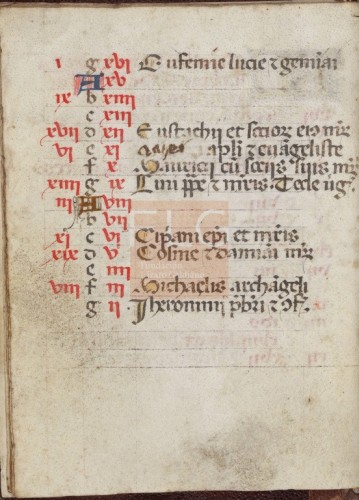 i g xvi Eufemie lucie et gemiai
A xv
ix b xiiii
c xiii
xvii d xii Eustachii et socior eius mr
vi e xi apli et euangeliste
f x Mauricii cu socijs suis mr
xiiii g ix Lini ppe et mris Tecle vg
iii A viii
b vii
xi c vi Cipani epi et mris
xix d v Cosme et damiai mr
e iiii
viii f iii Michaelis archageli
g ii Jheronimi pbri et cf